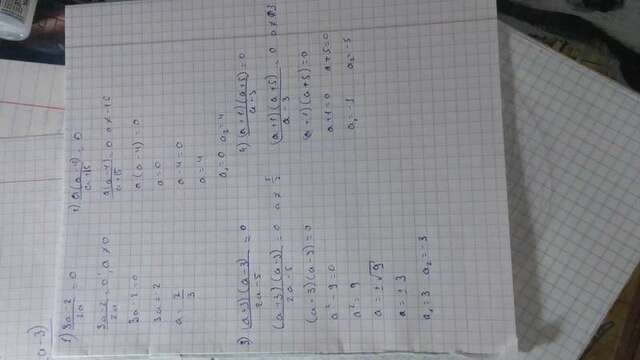 a-3)
1) (3a-2)/(2a) = 0
(3a-2)/(2a) = 0, a ≠ 0
3a-2=0
3a=2
a = 2/3
2) (a(a-4))/(a+15) = 0
(a(a-4))/(a+15) = 0 a ≠ -15
a(a-4)=0
a=0
a-4=0
a=4
a₁=0 a₂=4
3) ((a+3)(a-3))/(2a-5) = 0
((a+3)(a-3))/(2a-5) = 0 a ≠ 5/2
(a+3)(a-3)=0
a²-9=0
a²=9
a=±√9
a=±3
a₁=3 a₂=-3
4) ((a+1)(a+5))/(a-3) = 0
((a+1)(a+5))/(a-3) = 0 a ≠ 3
(a+1)(a+5)=0
a+1=0 a+5=0
a₁=-1 a₂=-5